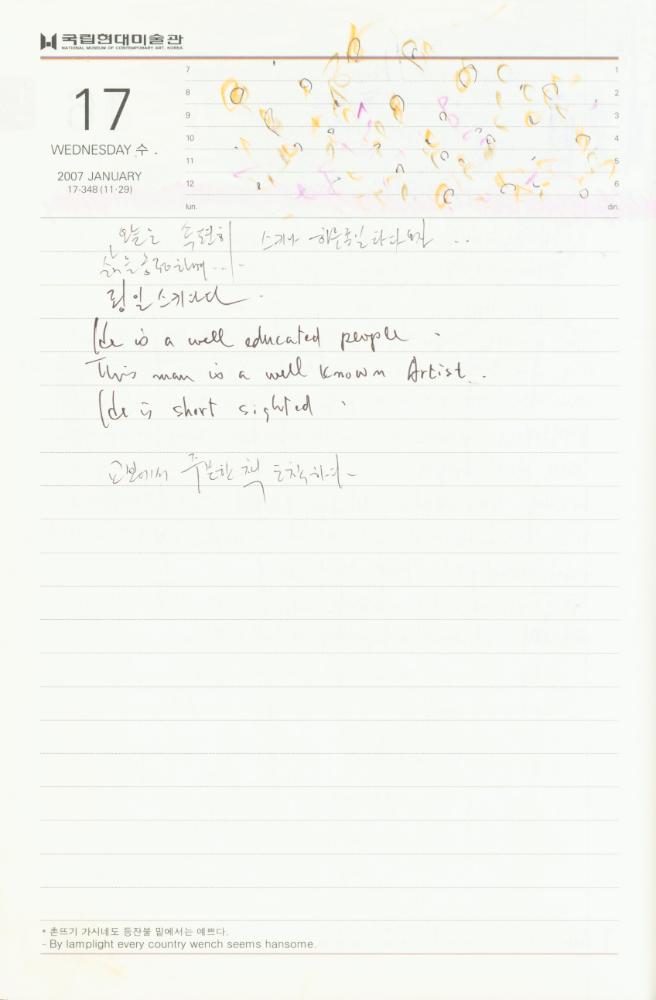 국립현대미술관
NATIONAL MUSEUM OF CONTEMPORARY ART, KOREA
17
WEDNESDAY 수.
2007 JANUARY
17-348 (11·29)
7 1
8 2
9 3
10 4
11 5
12 6
lun. din.
오늘은
He is a well educated people.
This man is a well known Artist.
He is short sighted.
교보에서 주문한 책 도착하여-
* 촌뜨기 가시네도 등잔불 밑에서는 예쁘다.
- By lamplight every country wench seems hansome.